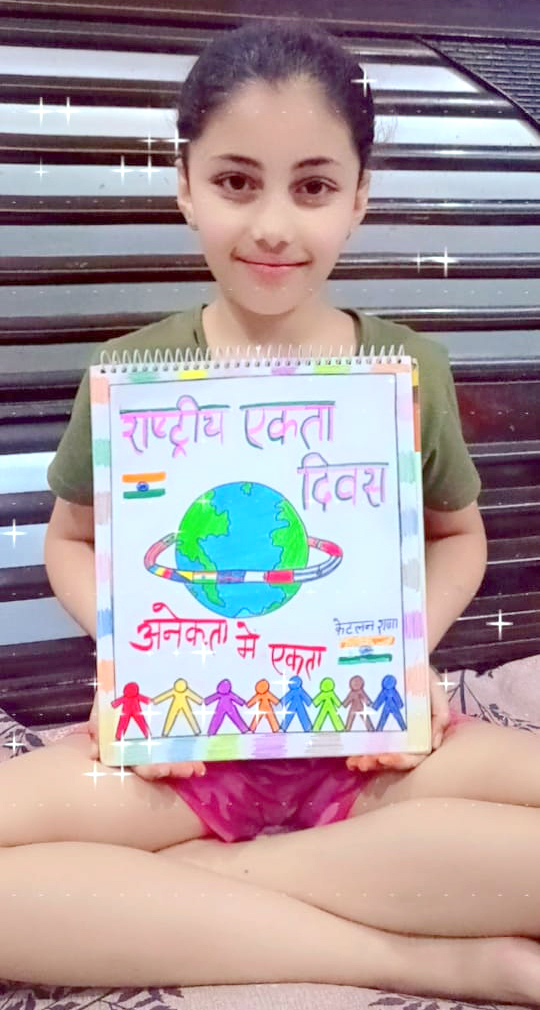 राष्ट्रीय एकता
दिवस
अनेकता में एकता
केटलन राणा